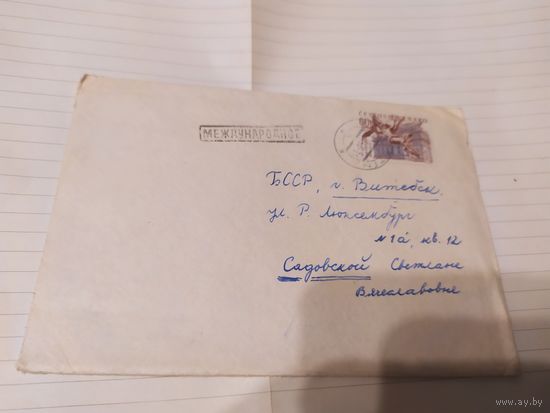 МЕЖДУНАРОДНОЕ
БССР, г. Витебск
ул. Р. Люксембург
№1а, кв. 12
Садовской Светлане
Вячеславовне
www.ay.by